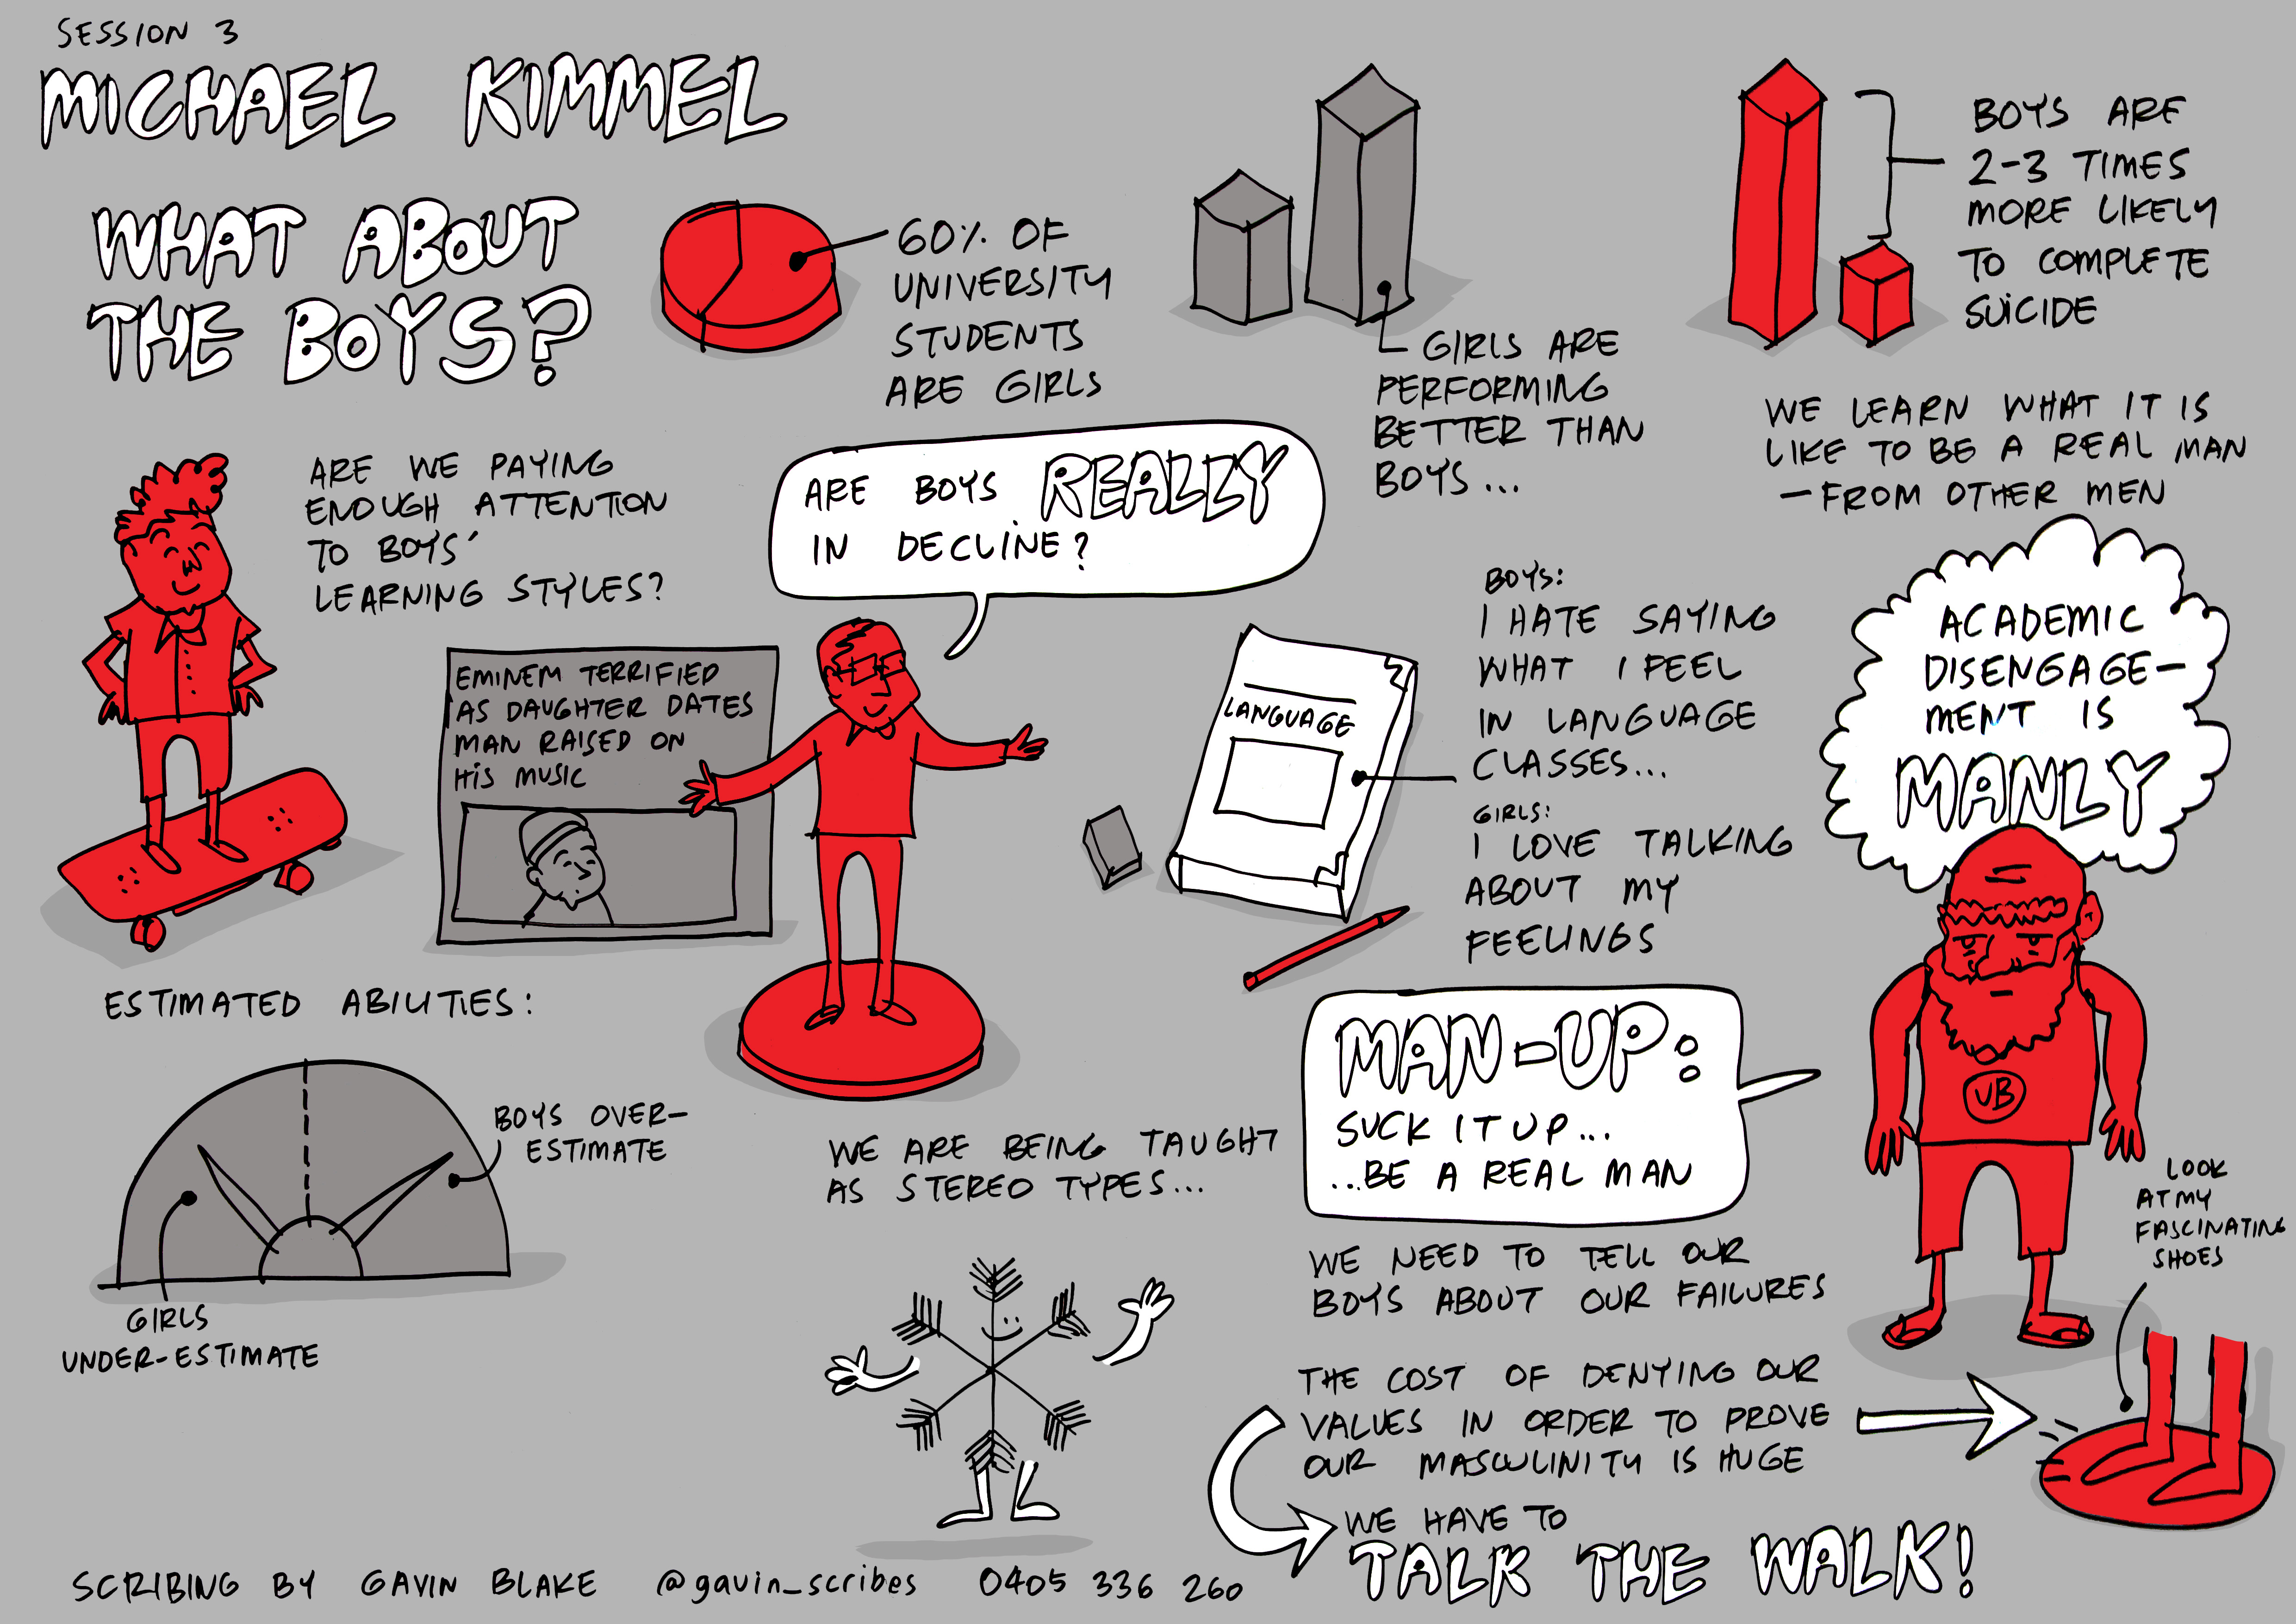 SESSION 3
MICHAEL KIMMEL
WHAT ABOUT
THE BOYS?
60% OF
UNIVERSITY
STUDENTS
ARE GIRLS
GIRLS ARE
PERFORMING
BETTER THAN
BOYS...
BOYS ARE
2-3 TIMES
MORE LIKELY
TO COMPLETE
SUICIDE
WE LEARN WHAT IT IS
LIKE TO BE A REAL MAN
—FROM OTHER MEN
ARE WE PAYING
ENOUGH ATTENTION
TO BOYS'
LEARNING STYLES?
ARE BOYS REALLY
IN DECLINE?
EMINEM TERRIFIED
AS DAUGHTER DATES
MAN RAISED ON
HIS MUSIC
LANGUAGE
BOYS:
I HATE SAYING
WHAT I FEEL
IN LANGUAGE
CLASSES...
GIRLS:
I LOVE TALKING
ABOUT MY
FEELINGS
ACADEMIC
DISENGAGE-
MENT IS
MANLY
VB
ESTIMATED ABILITIES:
BOYS OVER-
ESTIMATE
GIRLS
UNDER-ESTIMATE
WE ARE BEING TAUGHT
AS STEREO TYPES...
MAN-UP:
SUCK IT UP...
...BE A REAL MAN
WE NEED TO TELL OUR
BOYS ABOUT OUR FAILURES
LOOK
AT MY
FASCINATING
SHOES
THE COST OF DENYING OUR
VALUES IN ORDER TO PROVE
OUR MASCULINITY IS HUGE
WE HAVE TO
TALK THE WALK!
SCRIBING BY GAVIN BLAKE @gavin_scribes 0405 336 260